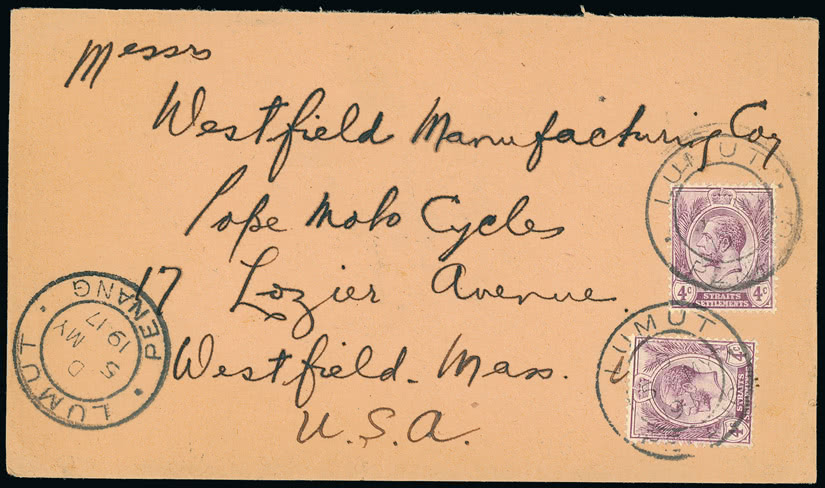 Messrs
Westfield Manufacturing Coy
Pope Moto Cycles
17 Lozier Avenue.
Westfield. Mass.
U.S.A.
LUMUT
4c STRAITS SETTLEMENTS 4c
LUMUT
STRAITS SETTLEMENTS
LUMUT · PENANG
D
5 MY
1917